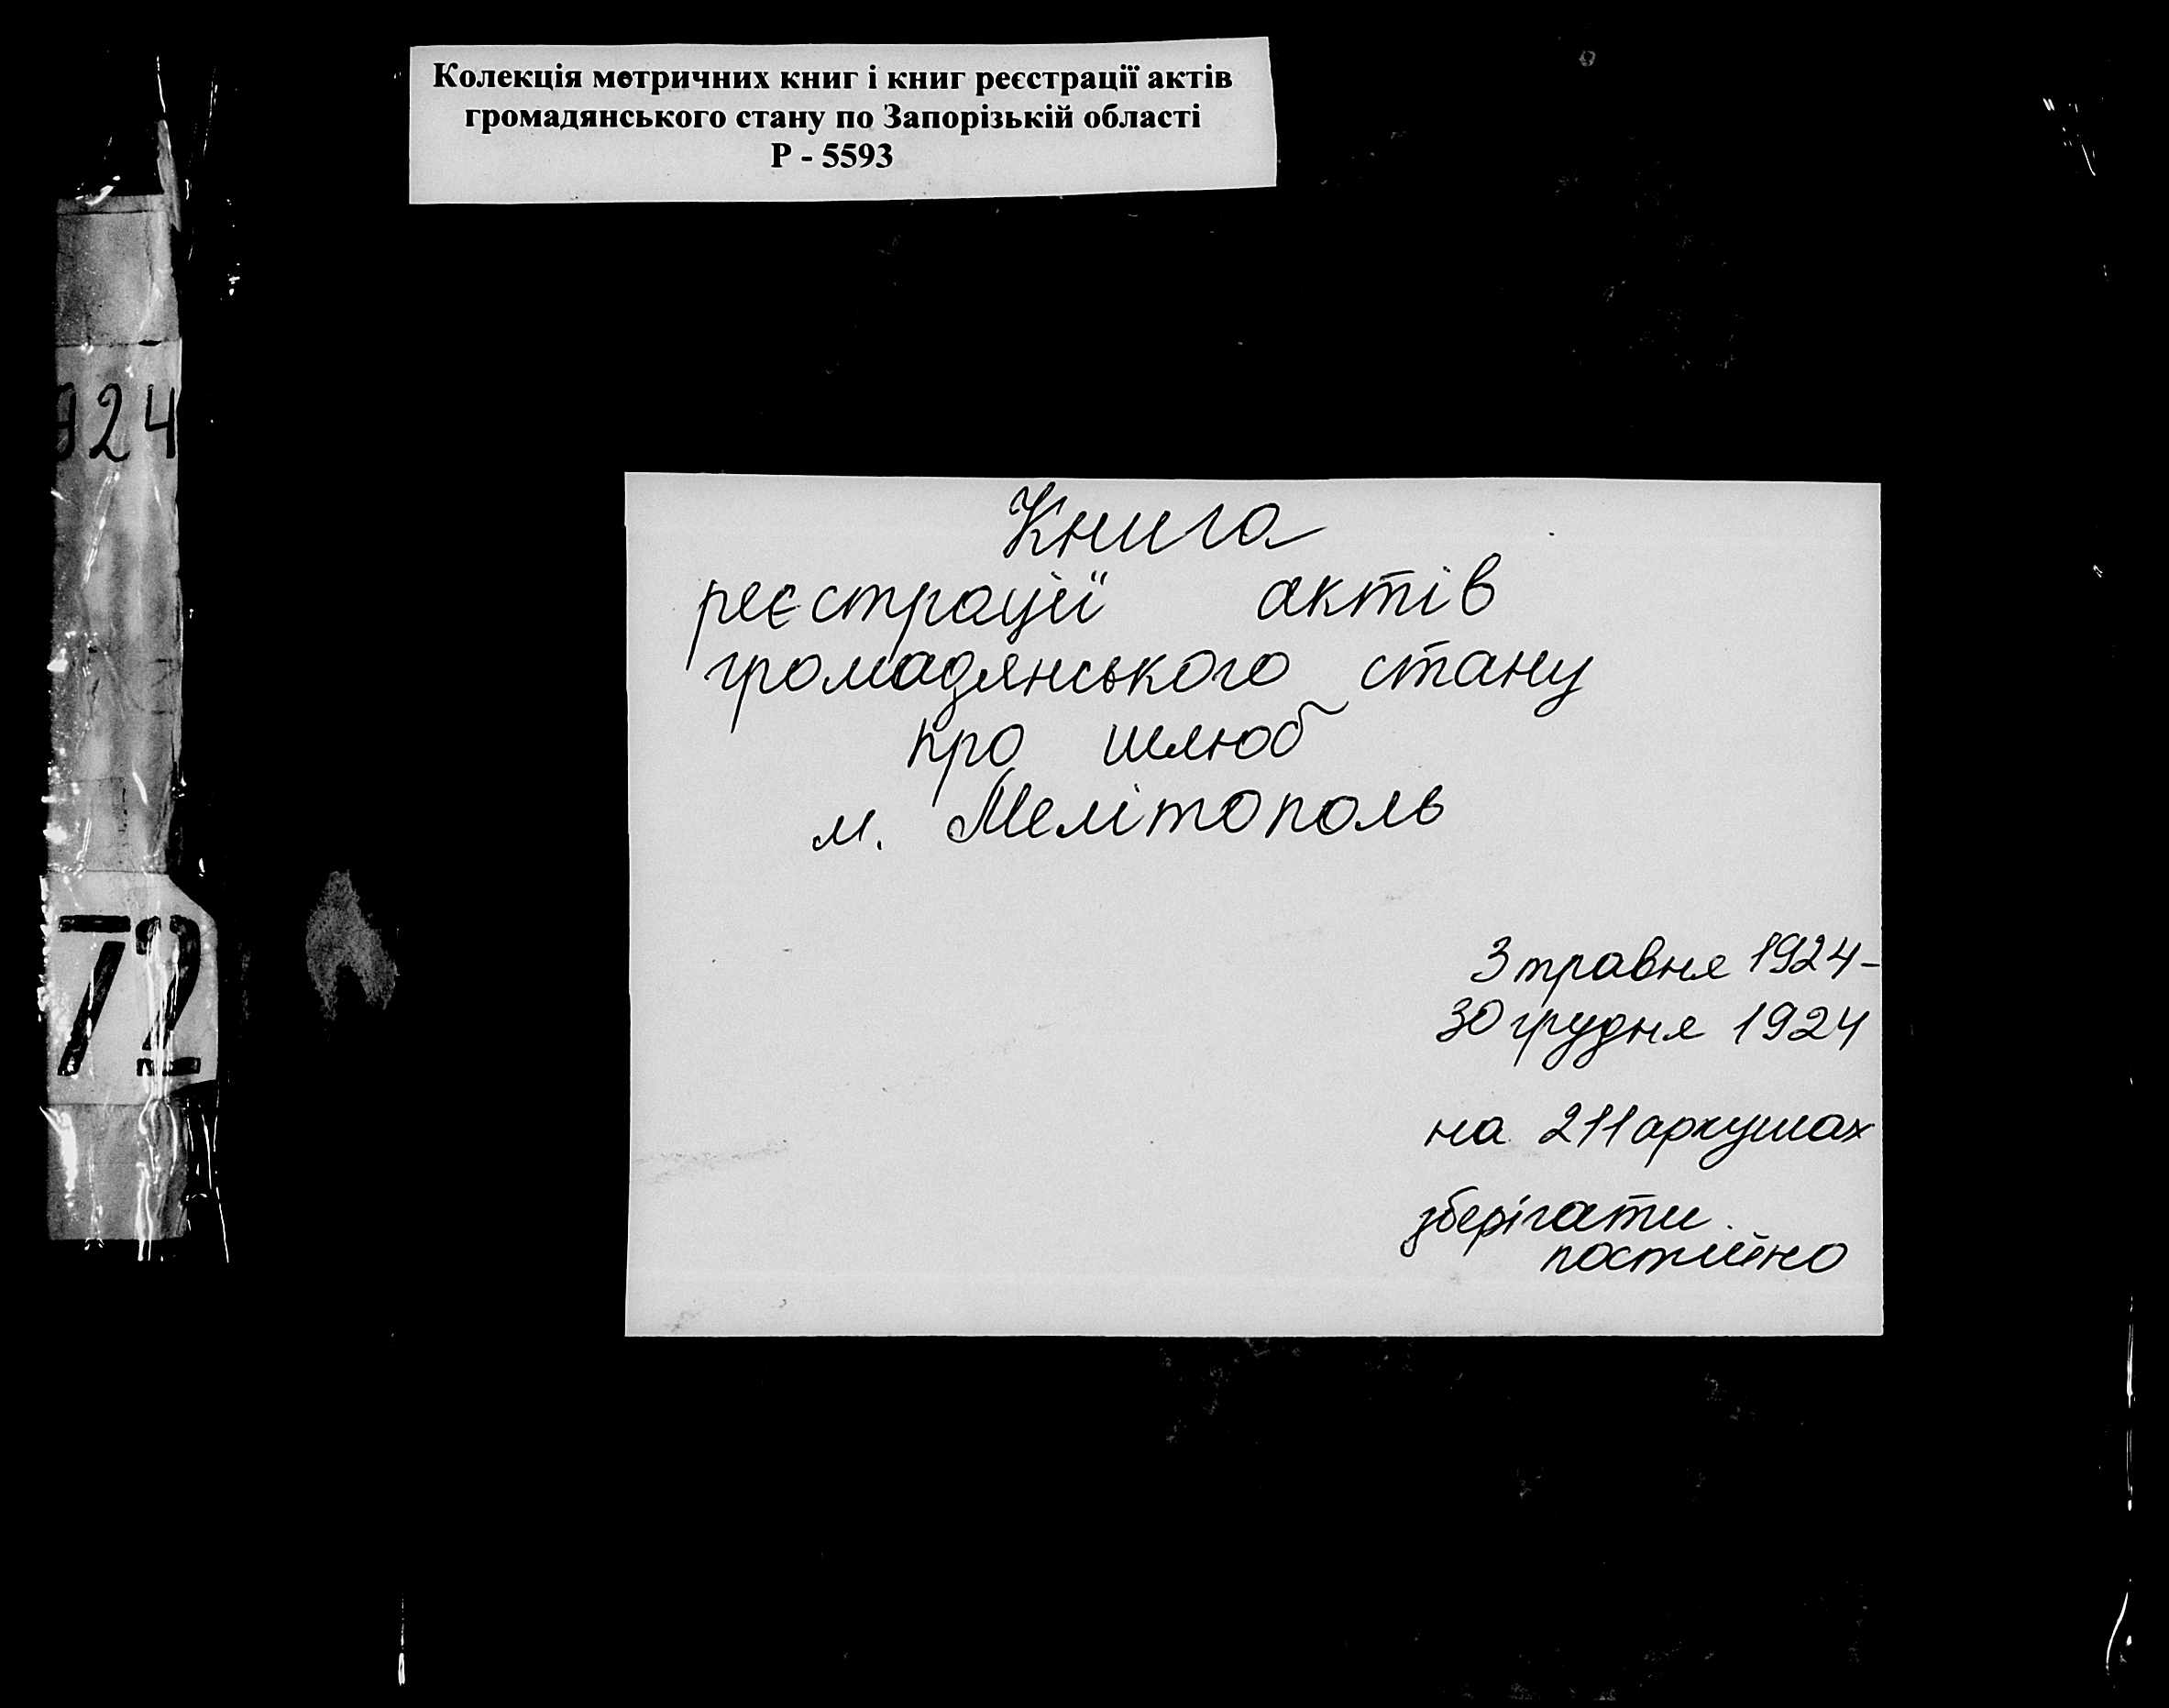 Колекція метричних книг і книг реєстрації актів
громадянського стану по Запорізькій області
Р - 5593
924
72
Книга
реєстрації актів
громадянського стану
про шлюб
м. Мелітополь
3 травня 1924-
30 грудня 1924
на 211 аркушах
зберігати
постійно